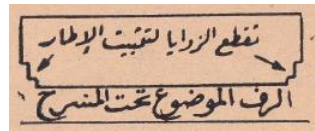 تقطع الزوايا لتثبيت الإطار
الرف الموضوع تحت المسرح